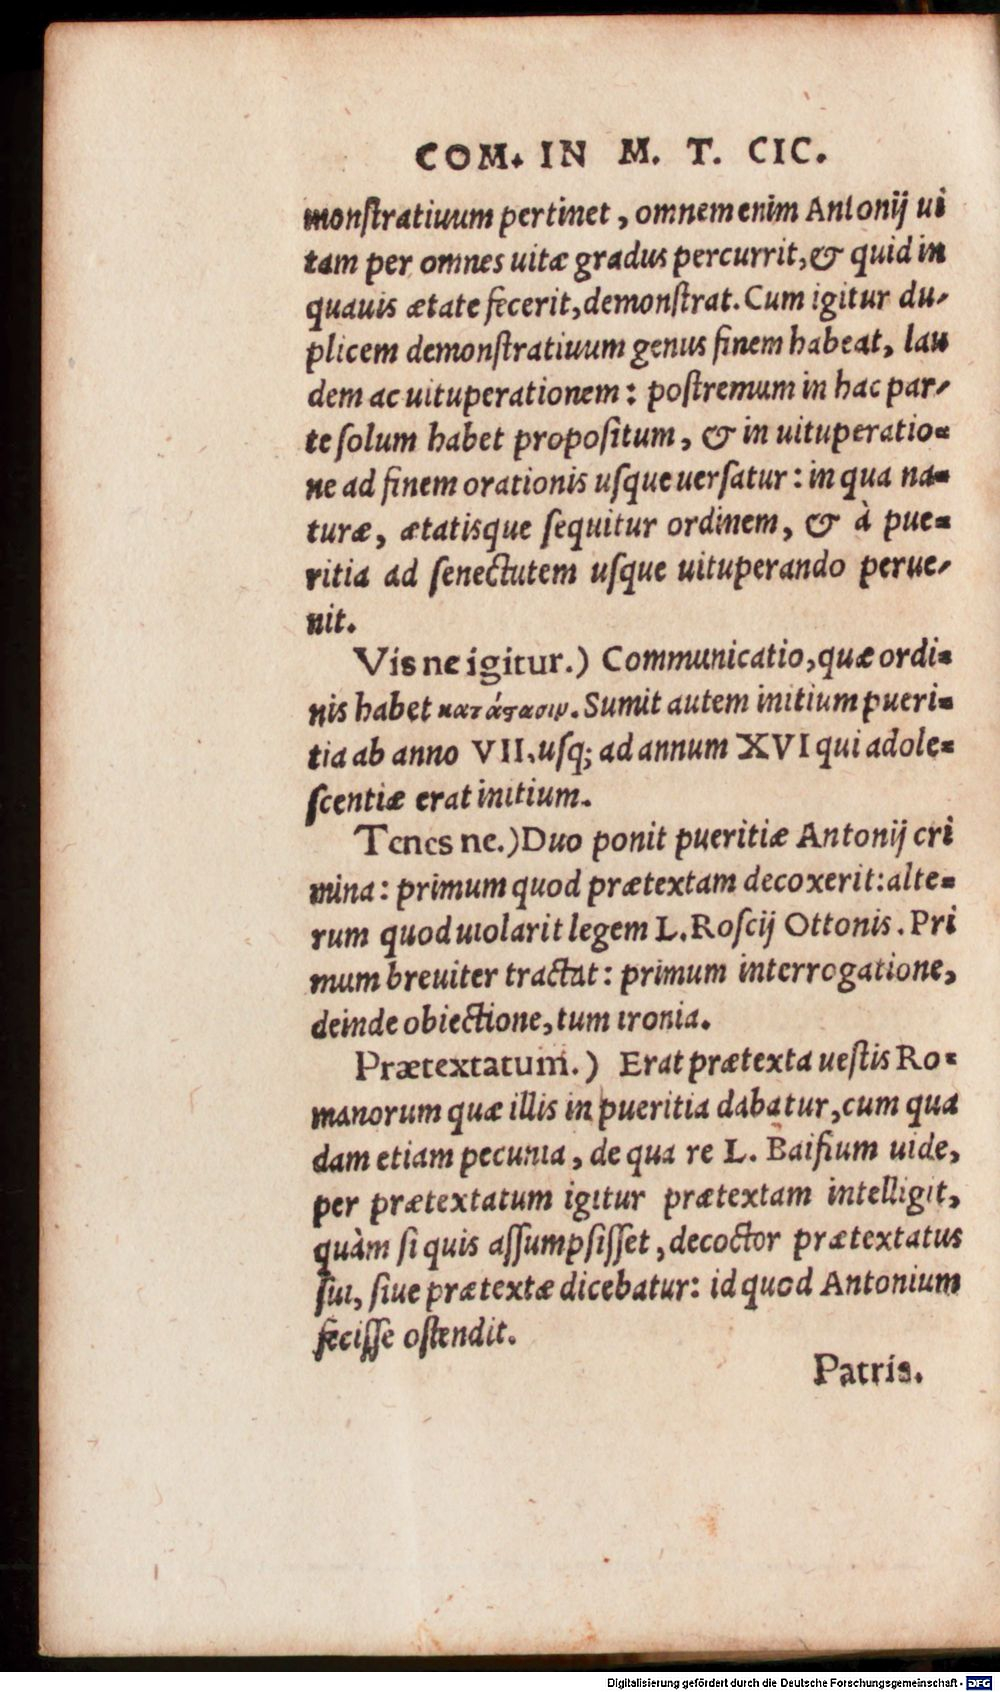 COM. IN M. T. CIC.
monſtratiuum pertinet, omnem enim Antonij ui
tam per omnes uitæ gradus percurrit, & quid in
quauis ætate fecerit, demonſtrat. Cum igitur du-
plicem demonſtratiuum genus finem habeat, lau
dem ac uituperationem: poſtremum in hac par-
te ſolum habet propoſitum, & in uituperatio=
ne ad finem orationis uſque uerſatur: in qua na=
turæ, ætatisque ſequitur ordinem, & à pue=
ritia ad ſenectutem uſque uituperando perue-
nit.
Vis ne igitur.) Communicatio, quæ ordi=
nis habet κατάστασιν. Sumit autem initium pueri=
tia ab anno VII. uſq; ad annum XVI qui adole=
ſcentiæ erat initium.
Tenes ne.) Duo ponit pueritiæ Antonij cri
mina: primum quod prætextam decoxerit: alte=
rum quod uiolarit legem L. Roſcij Ottonis. Pri
mum breuiter tractat: primum interrogatione,
deinde obiectione, tum ironia.
Prætextatum.) Erat prætexta ueſtis Ro=
manorum quæ illis in pueritia dabatur, cum qua
dam etiam pecunia, de qua re L. Baifium uide,
per prætextatum igitur prætextam intelligit,
quàm ſi quis aſſumpſiſſet, decoctor prætextatus
ſui, ſiue prætextæ dicebatur: id quod Antonium
feciſſe oſtendit.
Patris.
Digitalisierung gefördert durch die Deutsche Forschungsgemeinschaft - DFG